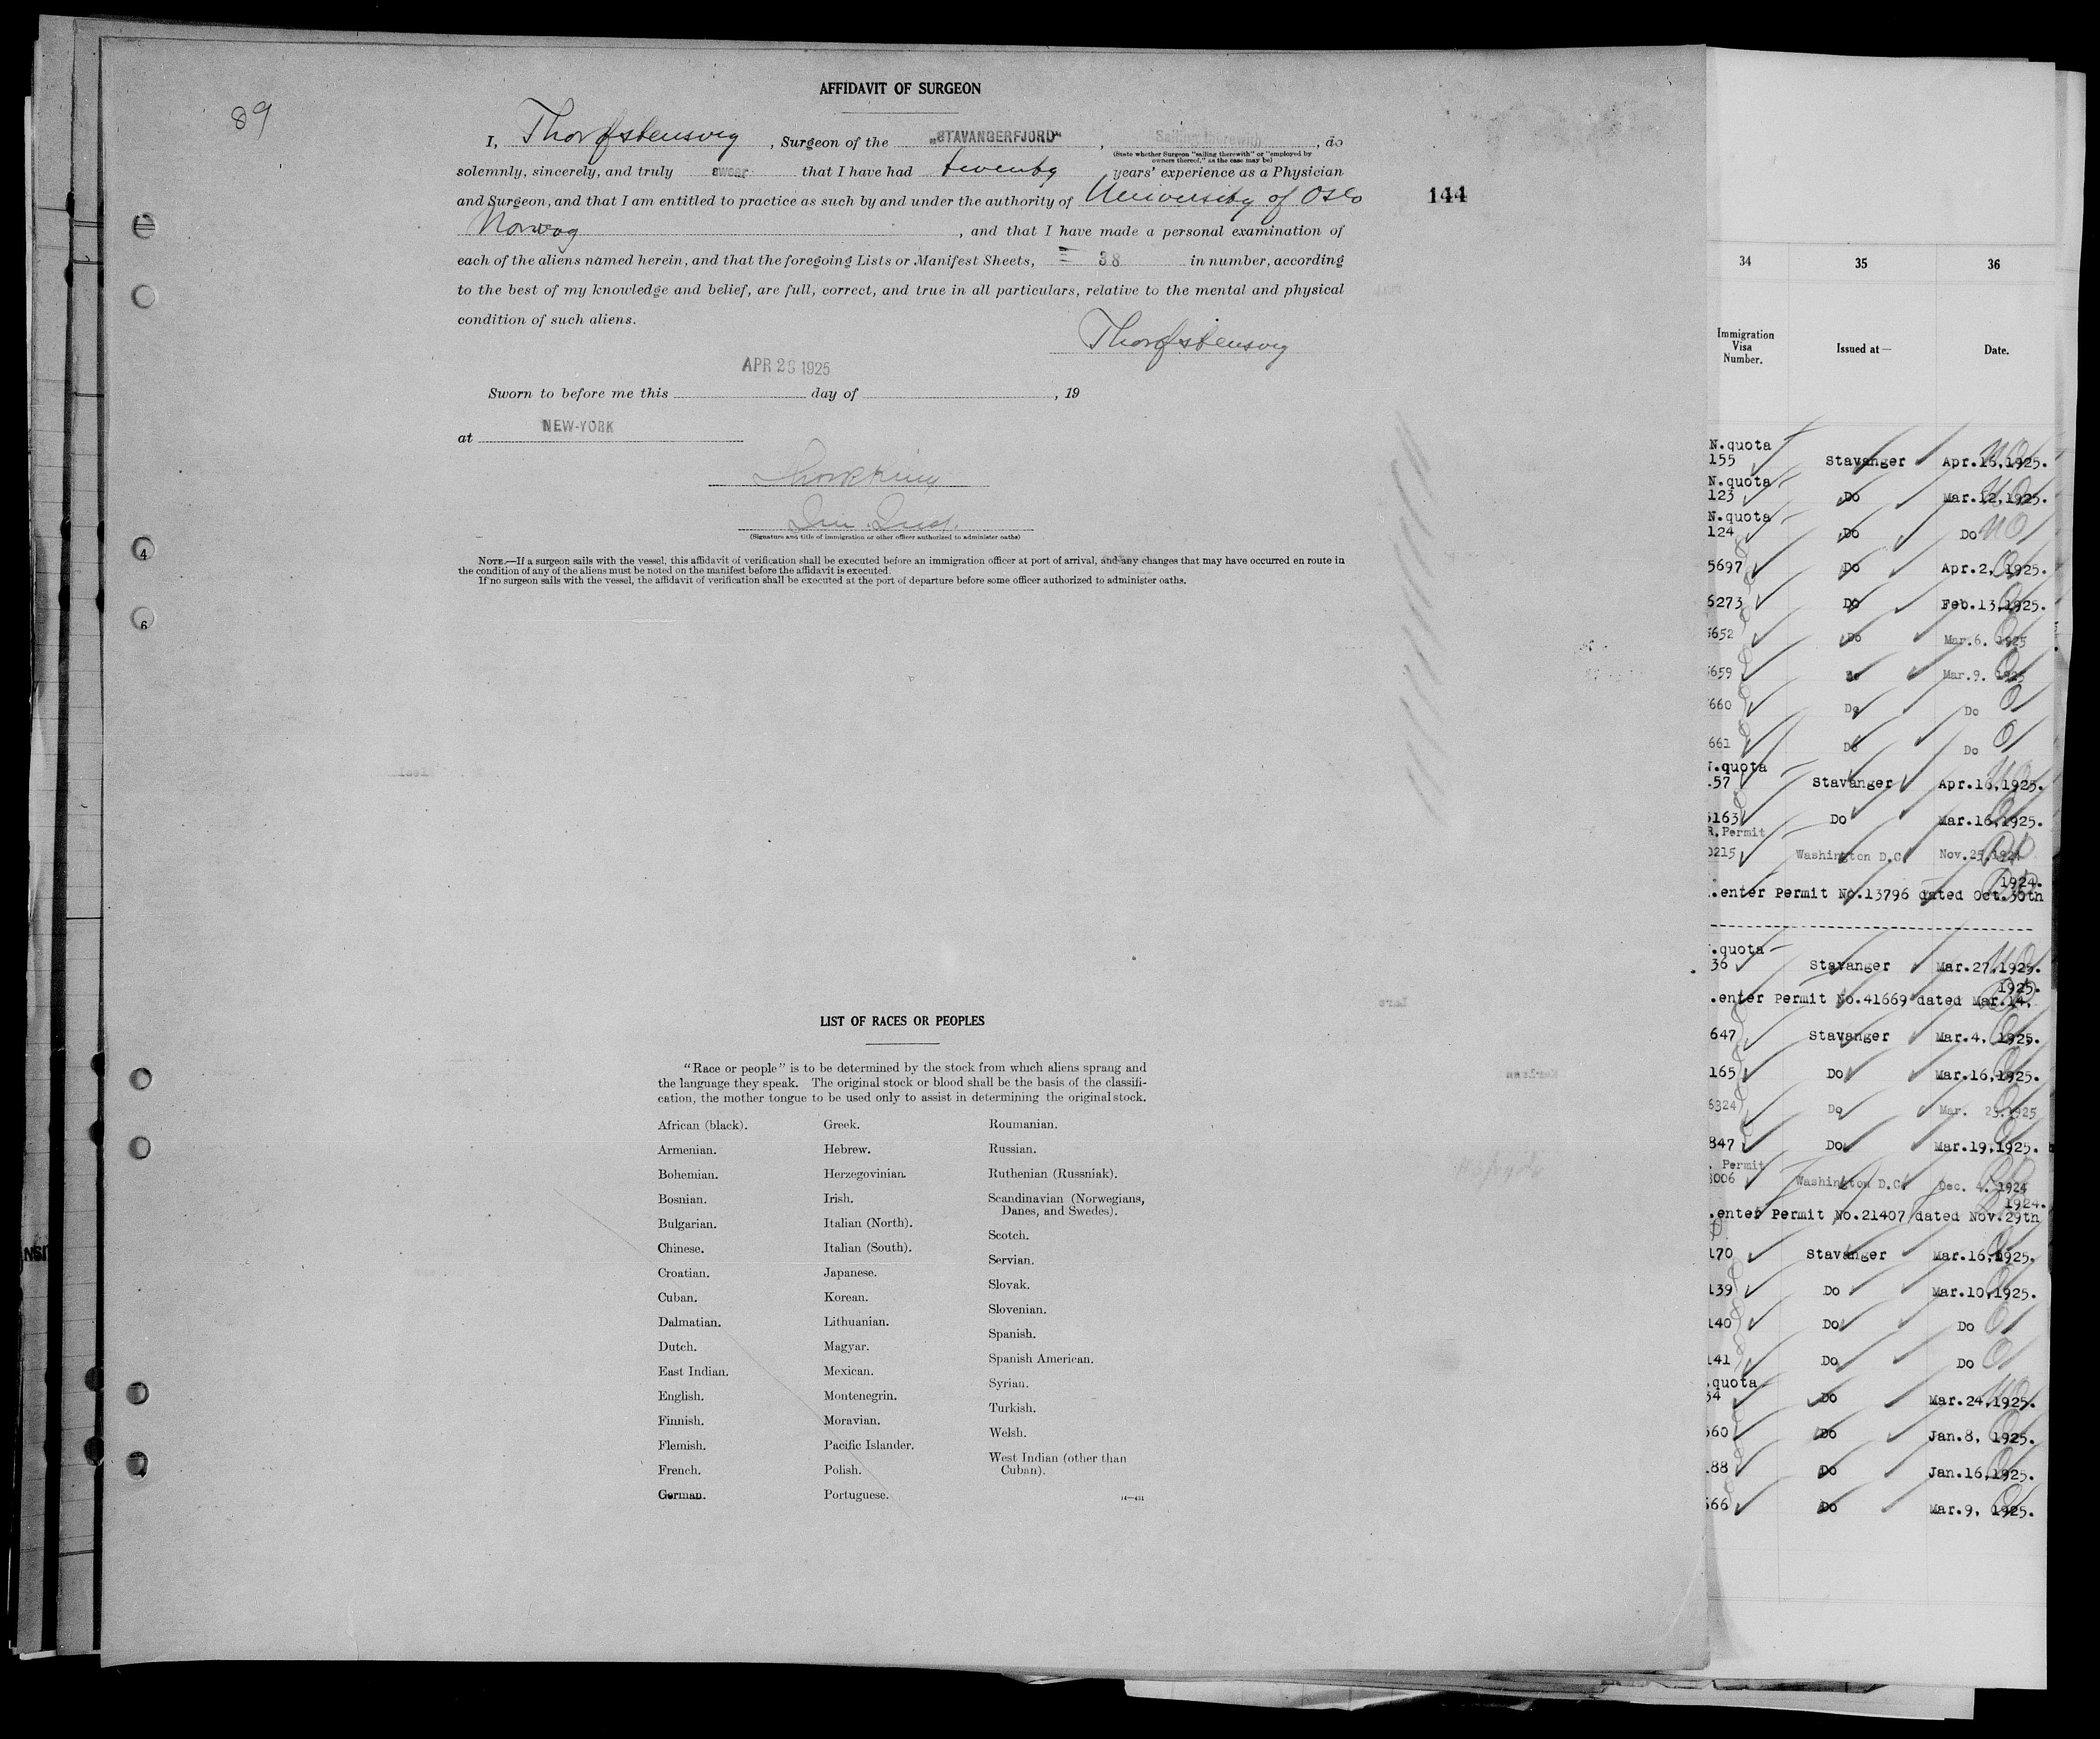 89
AFFIDAVIT OF SURGEON
I, , Surgeon of the „STAVANGERFJORD“ , Sailing therewith , do
(State whether Surgeon "sailing therewith" or "employed by
owners thereof," as the case may be)
solemnly, sincerely, and truly swear that I have had twenty years' experience as a Physician
and Surgeon, and that I am entitled to practice as such by and under the authority of University of Oslo
Norway , and that I have made a personal examination of
each of the aliens named herein, and that the foregoing Lists or Manifest Sheets, 38 in number, according
to the best of my knowledge and belief, are full, correct, and true in all particulars, relative to the mental and physical
condition of such aliens.
144
APR 26 1925
Sworn to before me this day of , 19
at NEW-YORK
(Signature and title of immigration or other officer authorized to administer oaths)
NOTE.—If a surgeon sails with the vessel, this affidavit of verification shall be executed before an immigration officer at port of arrival, and any changes that may have occurred en route in
the condition of any of the aliens must be noted on the manifest before the affidavit is executed.
If no surgeon sails with the vessel, the affidavit of verification shall be executed at the port of departure before some officer authorized to administer oaths.
4
6
LIST OF RACES OR PEOPLES
"Race or people" is to be determined by the stock from which aliens sprang and
the language they speak. The original stock or blood shall be the basis of the classifi-
cation, the mother tongue to be used only to assist in determining the original stock.
African (black).
Armenian.
Bohemian.
Bosnian.
Bulgarian.
Chinese.
Croatian.
Cuban.
Dalmatian.
Dutch.
East Indian.
English.
Finnish.
Flemish.
French.
German.
Greek.
Hebrew.
Herzegovinian.
Irish.
Italian (North).
Italian (South).
Japanese.
Korean.
Lithuanian.
Magyar.
Mexican.
Montenegrin.
Moravian.
Pacific Islander.
Polish.
Portuguese.
Roumanian.
Russian.
Ruthenian (Russniak).
Scandinavian (Norwegians,
Danes, and Swedes).
Scotch.
Servian.
Slovak.
Slovenian.
Spanish.
Spanish American.
Syrian.
Turkish.
Welsh.
West Indian (other than
Cuban).
14—431
34 35 36
Immigration
Visa
Number.
Issued at—
Date.
N.quota
155 Stavanger Apr.16,1925.
N.quota
123 Do Mar.12,1925.
N.quota
124 Do Do
5697 Do Apr.2, 1925.
6273 Do Feb.13,1925.
652 Do Mar.6. 1925
659 Do Mar.9. 1925
660 Do Do
661 Do Do
.quota
57 Stavanger Apr.16,1925.
163 Do Mar.16,1925.
R.Permit
0215 Washington D.C. Nov.25,1924
1924.
.enter Permit No.13796 dated Oct.30th
.quota
36 Stavanger Mar.27,1925.
1925.
.enter Permit No.41669 dated Mar.14,
647 Stavanger Mar.4, 1925.
165 Do Mar.16,1925.
6324 Do Mar. 23.1925
847 Do Mar.19,1925.
. Permit
3006 Washington D.C. Dec. 4. 1924
1924.
.enter Permit No.21407 dated Nov.29th
170 Stavanger Mar.16,1925.
139 Do Mar.10,1925.
140 Do Do
141 Do Do
.quota
34 Do Mar.24,1925.
560 Do Jan.8, 1925.
188 Do Jan.16,1925.
566 Do Mar.9, 1925.